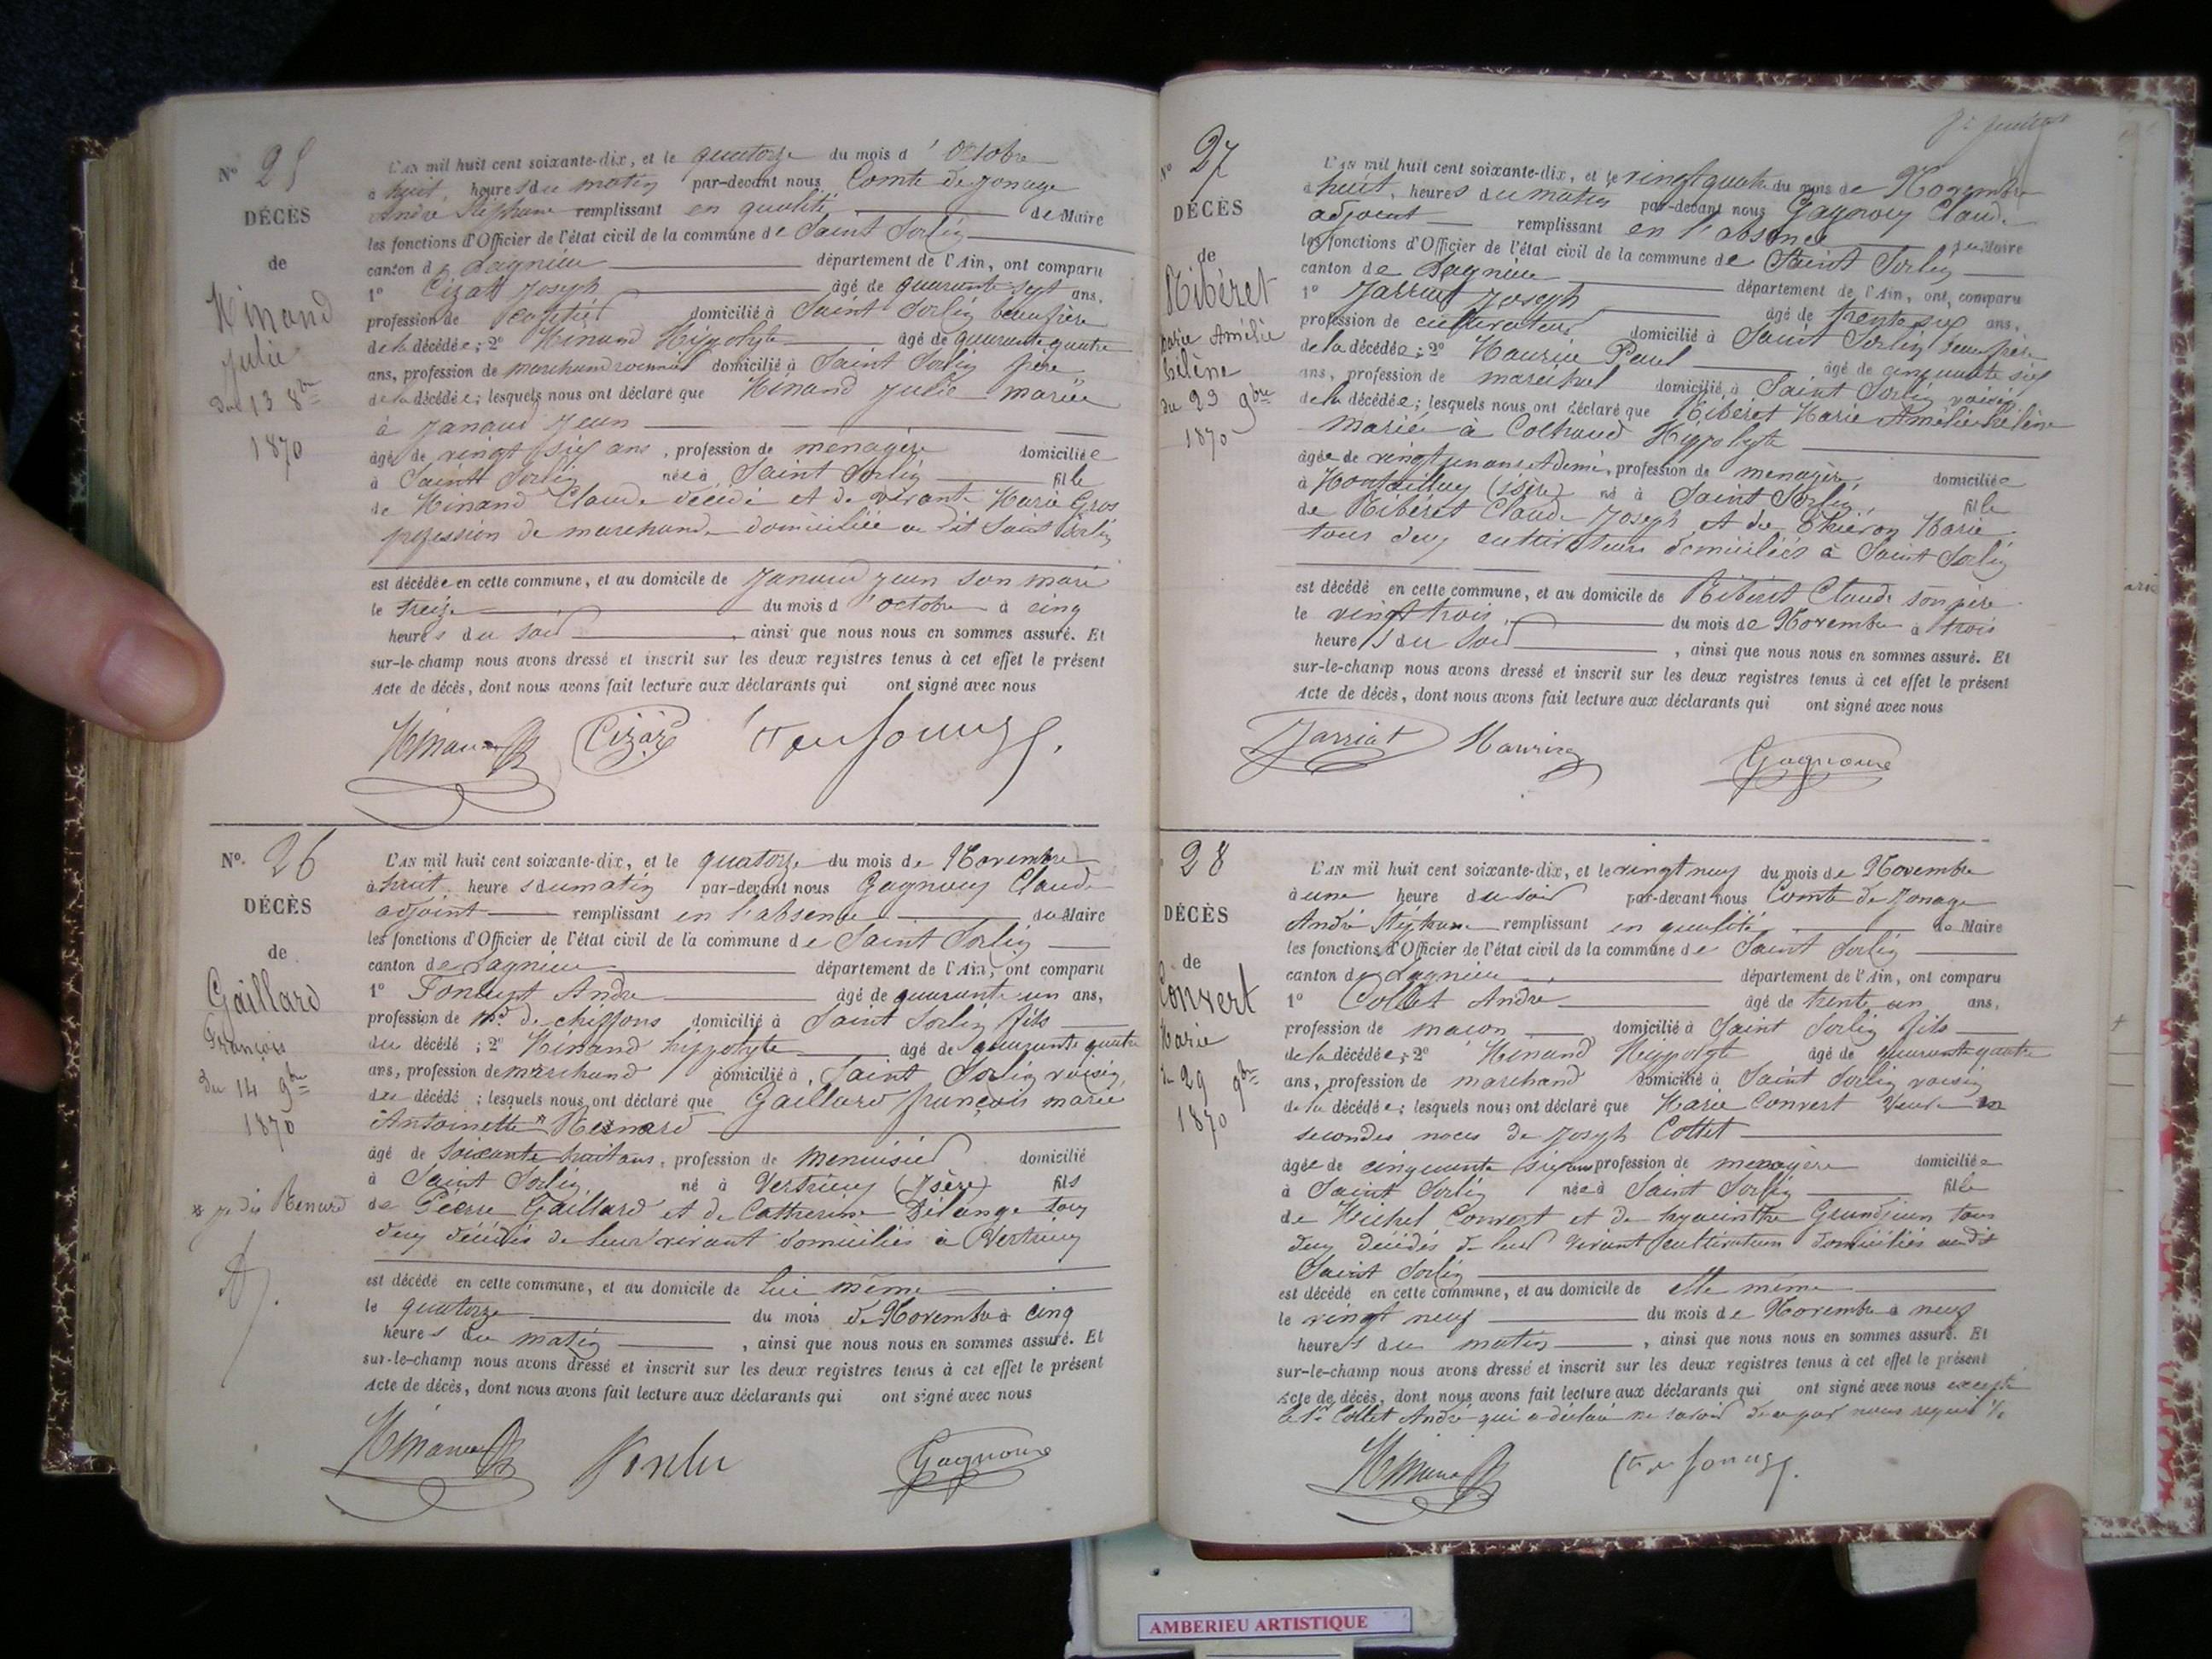 N° 25
DÉCÈS
de
Minand
Julie
Du 13 8bre
1870
L'AN mil huit cent soixante-dix, et le quatorze du mois d'Octobre
à huit heures du matin par-devant nous Comte de Jonage
André Stéphane remplissant en qualité de Maire
les fonctions d'Officier de l'état civil de la commune de Saint Sorlin
canton de Lagnieu département de l'Ain, ont comparu
1° Cizat Joseph âgé de quarante sept ans,
profession de domicilié à Saint Sorlin beau frère
de la décédée; 2° Minand Hippolyte âgé de quarante quatre
ans, profession de marchand domicilié à Saint Sorlin frère
de la décédée; lesquels nous ont déclaré que Minand Julie mariée
à Janaud Jean
âgé de vingt six ans, profession de menagère domiciliée
à Saint Sorlin née à Saint Sorlin fille
de Minand Claude décédé et de vivante Marie Gros
profession de marchande domiciliée au dit Saint Sorlin
est décédée en cette commune, et au domicile de Janaud Jean son mari
le treize du mois d'octobre à cinq
heures du soir, ainsi que nous nous en sommes assuré. Et
sur-le-champ nous avons dressé et inscrit sur les deux registres tenus à cet effet le présent
Acte de décès, dont nous avons fait lecture aux déclarants qui ont signé avec nous
Minand Cizat Cte de Jonage
N° 26
DÉCÈS
de
Gaillard
François
Du 14 9bre
1870
* je dis Renard
L'AN mil huit cent soixante-dix, et le quatorze du mois de Novembre
à huit heures du matin par-devant nous Gagnoux Claude
adjoint remplissant en l'absence du Maire
les fonctions d'Officier de l'état civil de la commune de Saint Sorlin
canton de Lagnieu département de l'Ain, ont comparu
1° André âgé de quarante un ans,
profession de Md de chiffons domicilié à Saint Sorlin fils
du décédé; 2° Minand hippolyte âgé de quarante quatre
ans, profession de marchand domicilié à Saint Sorlin voisin
du décédé; lesquels nous ont déclaré que Gaillard françois marié
Antoinette *
âgé de soixante huit ans, profession de menuisier domicilié
à Saint Sorlin né à Vertrieu (Isère) fils
de Pierre Gaillard et de Catherine Délange tous
deux décédés de leur vivant domiciliés à Vertrieu
est décédé en cette commune, et au domicile de lui même
le quatorze du mois de Novembre à cinq
heures du matin, ainsi que nous nous en sommes assuré. Et
sur-le-champ nous avons dressé et inscrit sur les deux registres tenus à cet effet le présent
Acte de décès, dont nous avons fait lecture aux déclarants qui ont signé avec nous
Minand Gagnoux
N° 27
DÉCÈS
de
Ribéret
Marie Amélie
Hélène
Du 23 9bre
1870
L'AN mil huit cent soixante-dix, et le vingt quatre du mois de Novembre
à huit heures du matin par-devant nous Gagnoux Claude
adjoint remplissant en l'absence du Maire
les fonctions d'Officier de l'état civil de la commune de Saint Sorlin
canton de Lagnieu département de l'Ain, ont comparu
1° Jarriat Joseph âgé de trente six ans,
profession de cultivateur domicilié à Saint Sorlin beau frère
de la décédée; 2° Maurin Paul âgé de cinquante six
ans, profession de maréchal domicilié à Saint Sorlin voisin
de la décédée; lesquels nous ont déclaré que Ribéret Marie Amélie hélène
mariée à Hippolyte
âgée de vingt un ans et demi, profession de menagère, domiciliée
à (Isère) né à Saint Sorlin fille
de Ribéret Claude Joseph et de Thiéron Marie
tous deux cultivateurs domiciliés à Saint Sorlin
est décédé en cette commune, et au domicile de Ribéret Claude son père
le vingt trois du mois de Novembre à trois
heures du soir, ainsi que nous nous en sommes assuré. Et
sur-le-champ nous avons dressé et inscrit sur les deux registres tenus à cet effet le présent
Acte de décès, dont nous avons fait lecture aux déclarants qui ont signé avec nous
Jarriat Maurin Gagnoux
28
DÉCÈS
de
Convert
Marie
Du 29 9bre
1870
L'AN mil huit cent soixante-dix, et le vingt neuf du mois de Novembre
à une heure du soir par-devant nous Comte de Jonage
André Stéphane remplissant en qualité de Maire
les fonctions d'Officier de l'état civil de la commune de Saint Sorlin
canton de Lagnieu département de l'Ain, ont comparu
1° Collet André âgé de trente un ans,
profession de maçon domicilié à Saint Sorlin fils
de la décédée; 2° Minand Hippolyte âgé de quarante quatre
ans, profession de marchand domicilié à Saint Sorlin voisin
de la décédée; lesquels nous ont déclaré que Marie Convert veuve en
secondes noces de Joseph Collet
âgée de cinquante six ans profession de menagère domiciliée
à Saint Sorlin née à Saint Sorlin fille
de Michel Convert et de hyacinthe Grandjean tous
deux décédés de leur vivant cultivateurs domiciliés audit
Saint Sorlin
est décédé en cette commune, et au domicile de elle même
le vingt neuf du mois de Novembre à neuf
heures du matin, ainsi que nous nous en sommes assuré. Et
sur-le-champ nous avons dressé et inscrit sur les deux registres tenus à cet effet le présent
Acte de décès, dont nous avons fait lecture aux déclarants qui ont signé avec nous excepté
le Sr Collet André qui a déclaré ne savoir de ce par nous requis
Minand Cte de Jonage
AMBERIEU ARTISTIQUE